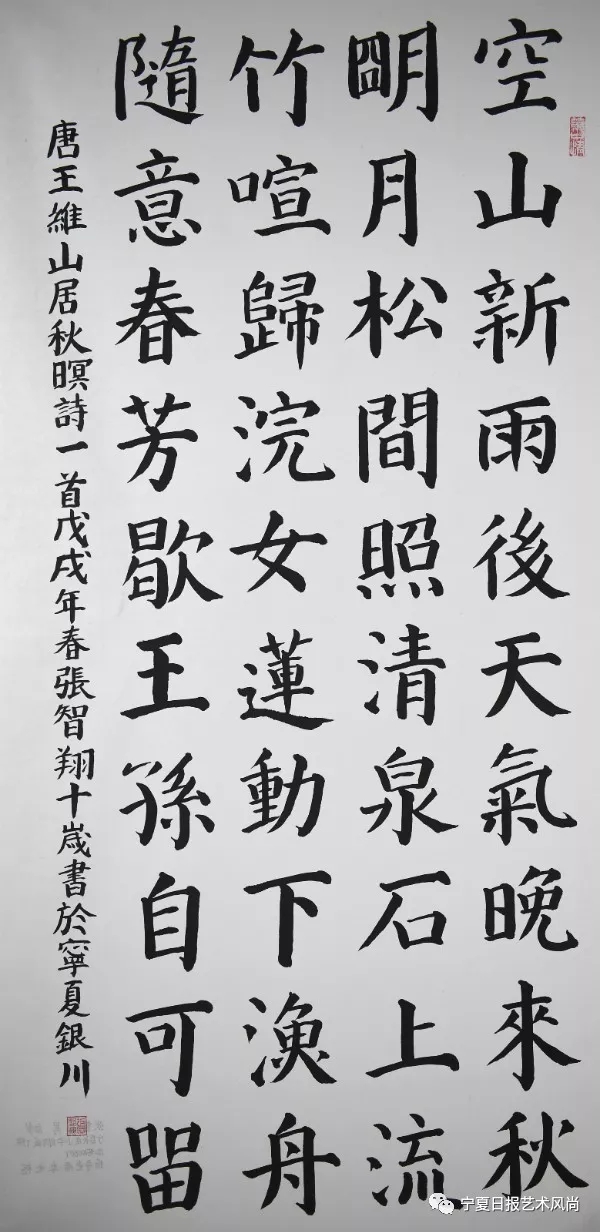 空山新雨後天氣晚來秋
明月松間照清泉石上流
竹喧歸浣女蓮動下漁舟
隨意春芳歇王孫自可留
唐王維山居秋暝詩一首戊戌年春張智翔十歲書於寧夏銀川
宁夏日报艺术风尚